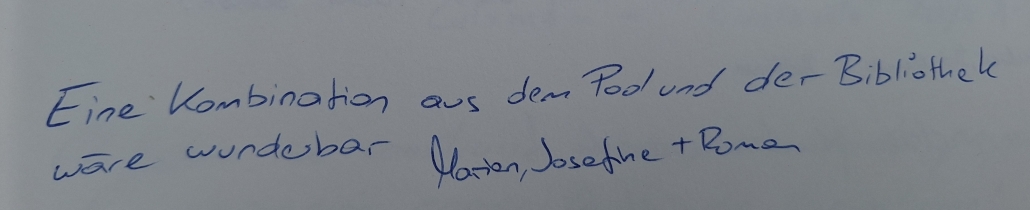 Eine Kombination aus dem Pod und der Bibliothek
wäre wunderbar Marien, Josefine + Roman